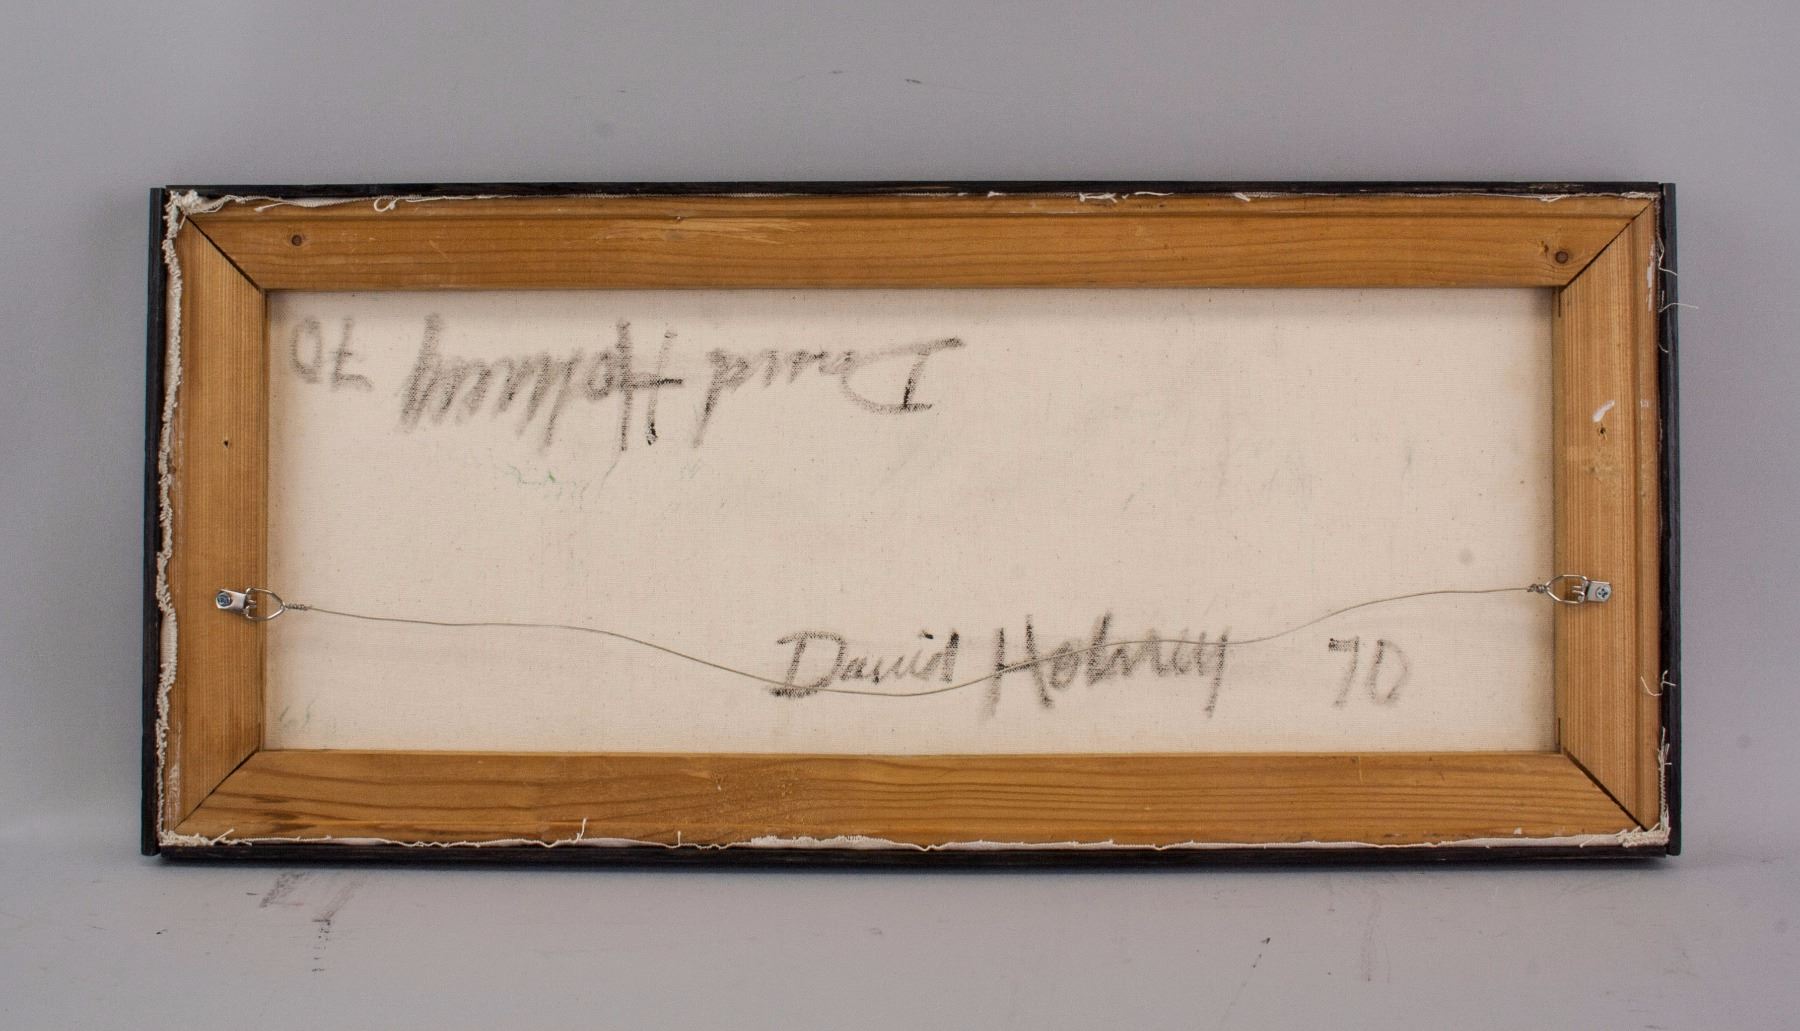 David Hockney 70
David Hockney 70